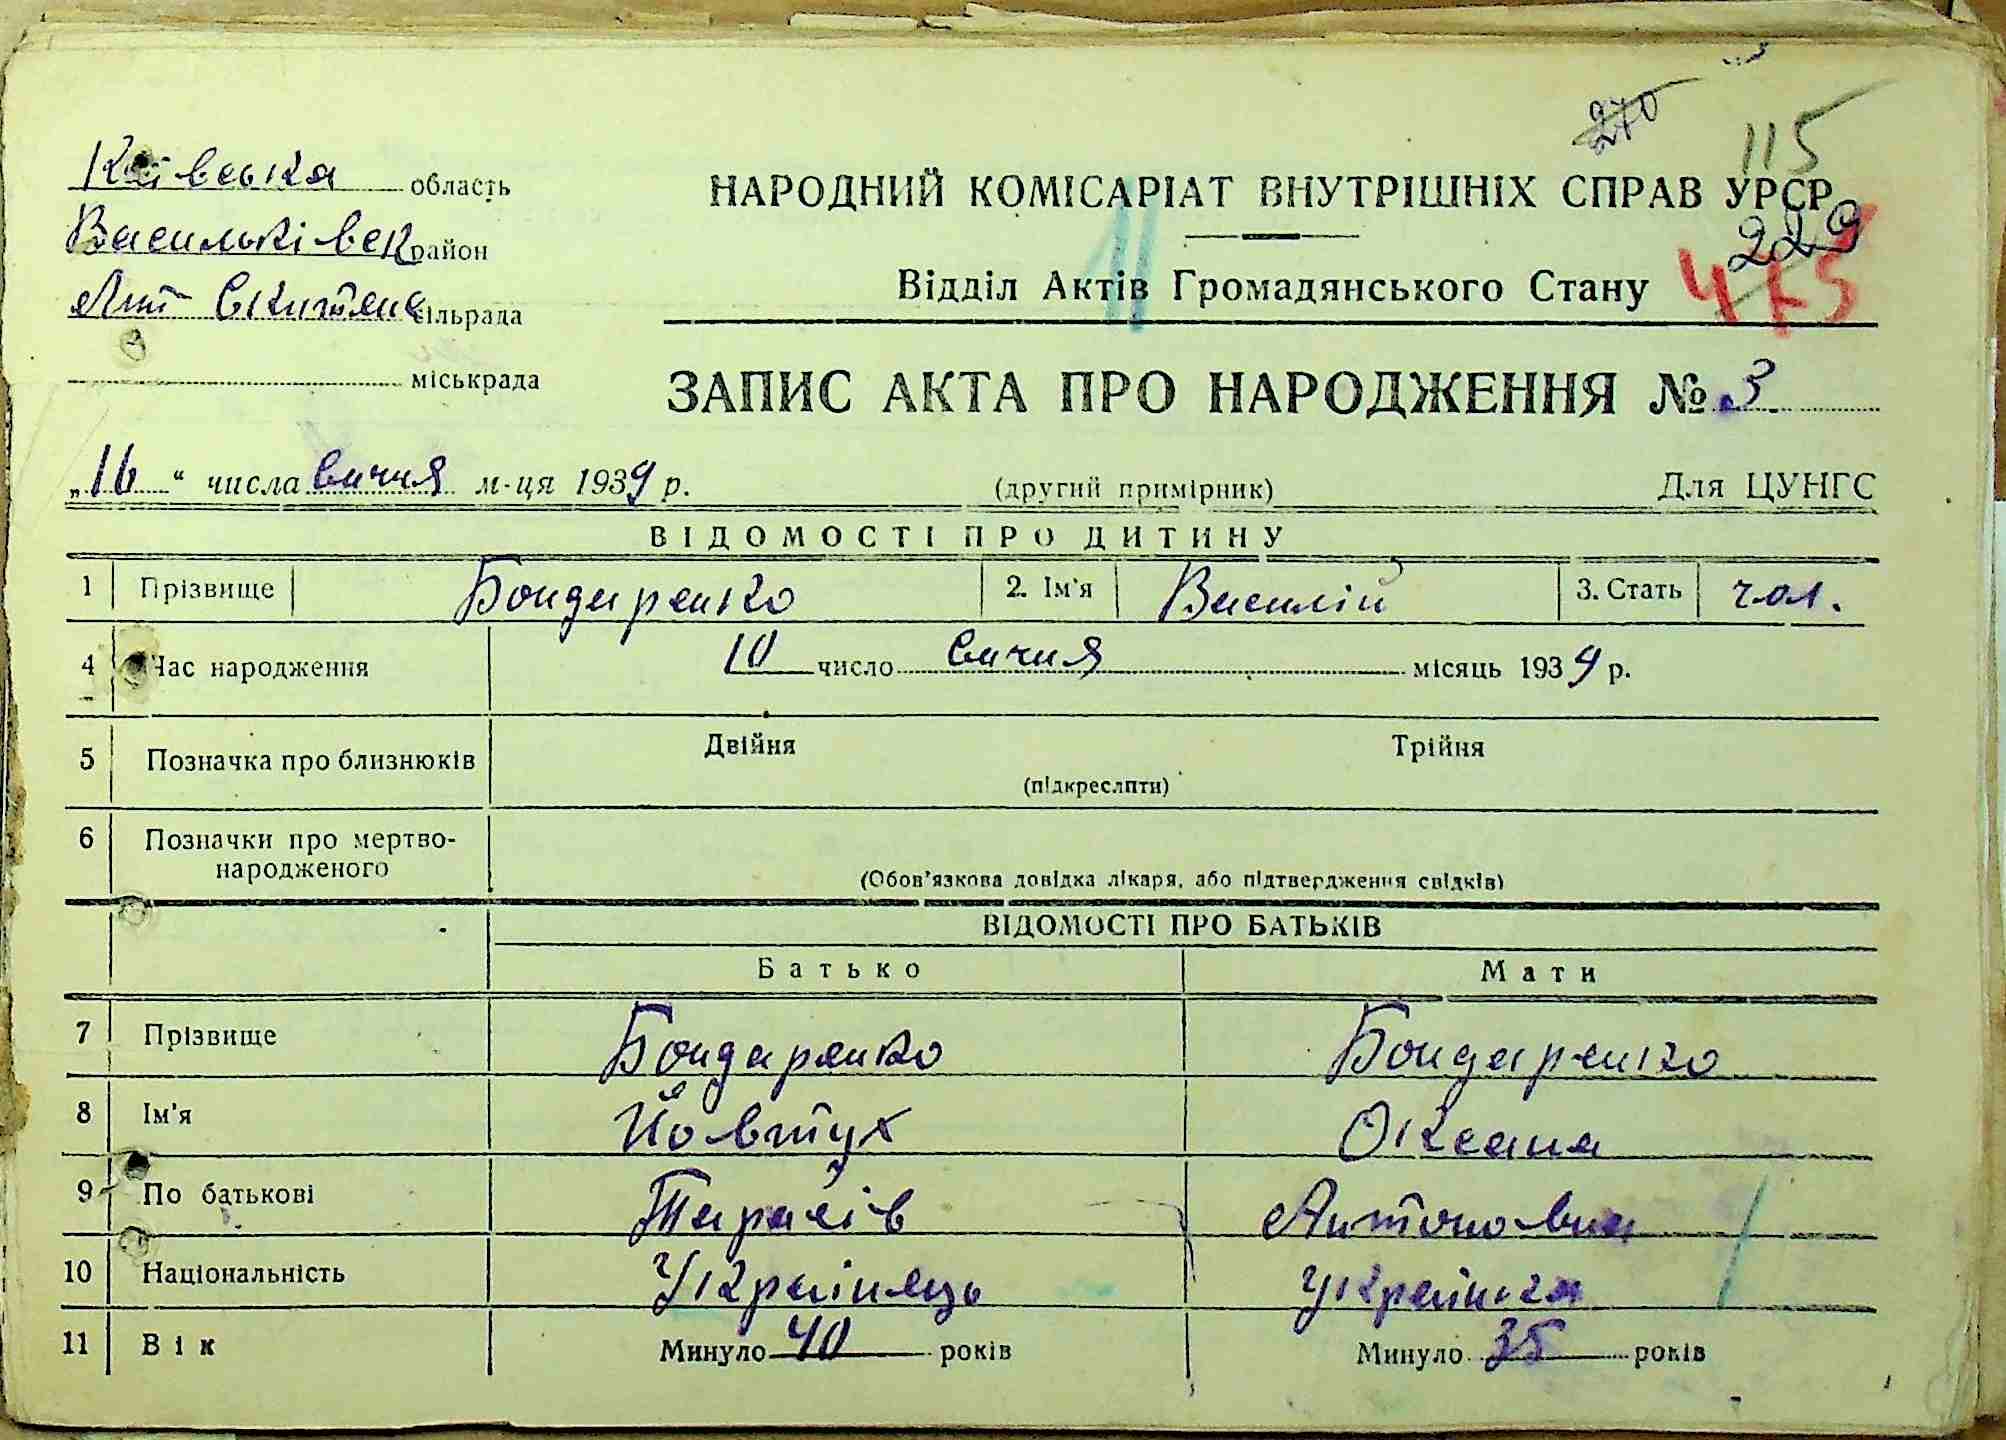 270
115
Київська область
НАРОДНИЙ КОМІСАРІАТ ВНУТРІШНІХ СПРАВ УРСР
229
Васильківськ район
Відділ Актів Громадянського Стану
475
сільрада
міськрада
ЗАПИС АКТА ПРО НАРОДЖЕННЯ № 3
„16“ числа січня м-ця 1939 р. (другий примірник) Для ЦУНГС
ВІДОМОСТІ ПРО ДИТИНУ
1 Прізвище Бондаренко 2. Ім'я Василій 3. Стать чол.
4 Час народження 10 число січня місяць 1939 р.
5 Позначка про близнюків Двійня Трійня
(підкреслити)
6 Позначки про мертво-
народженого
(Обов'язкова довідка лікаря, або підтвердження свідків)
ВІДОМОСТІ ПРО БАТЬКІВ
Батько Мати
7 Прізвище Бондаренко Бондаренко
8 Ім'я Йовтух Оксана
9 По батькові Тарасів Антоновна
10 Національність Українець Українка
11 Вік Минуло 40 років Минуло 35 років